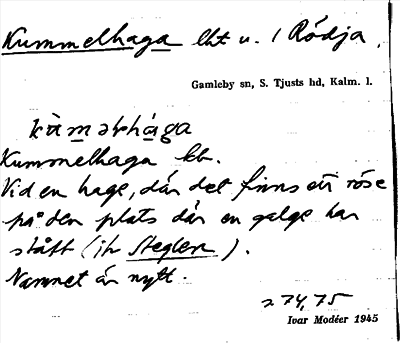 Kummelhaga lht u. 1 Rödja.
Gamleby sn, S. Tjusts hd, Kalm. l.
Kummelhaga kb.
Vid en hage, där det finns ett röse
på den plats där en galge har
stått (ib Steglen).
Namnet är nytt.
274,75
Ivar Modéer 1945